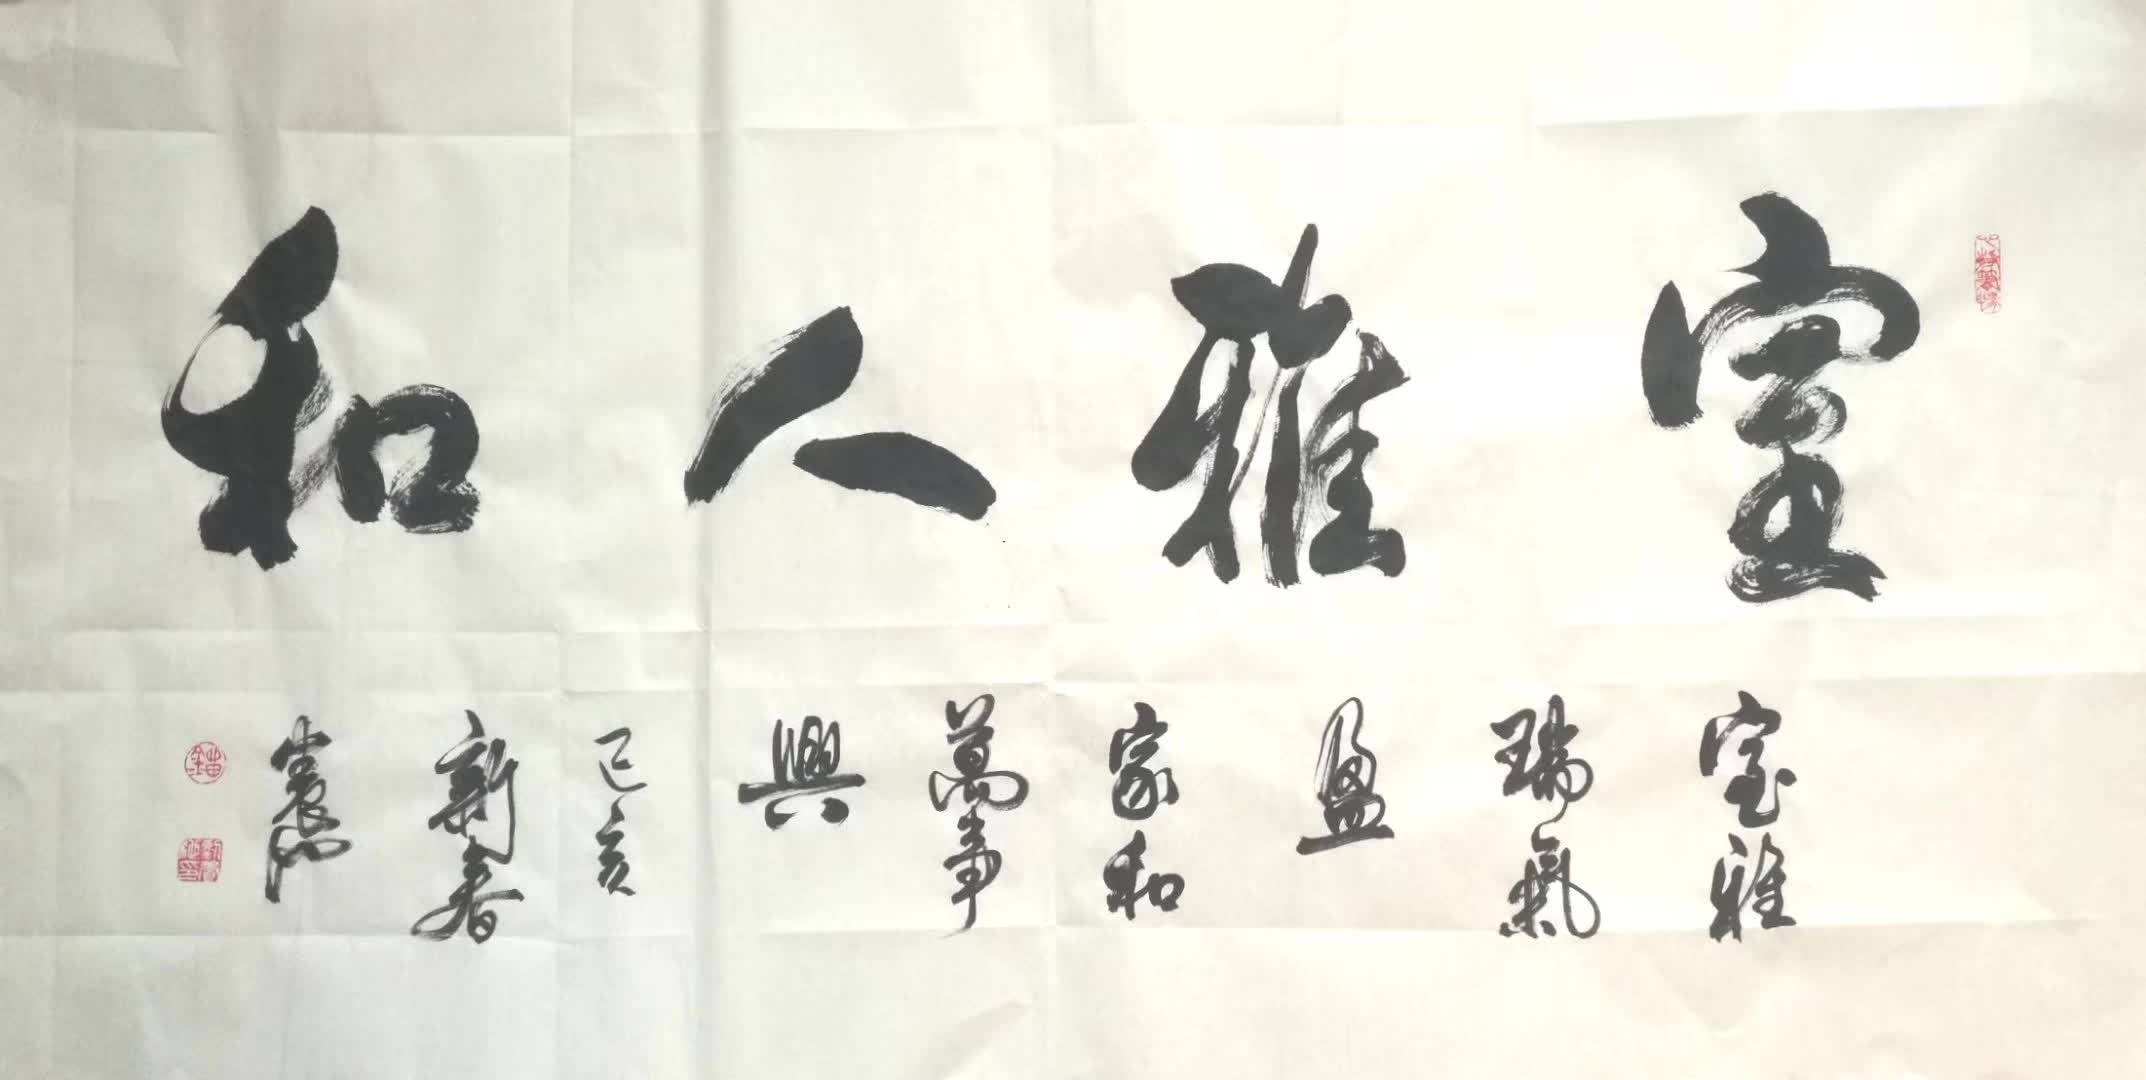 室雅人和
室雅
瑞氣
盈
家和
萬事
興
己亥
新春